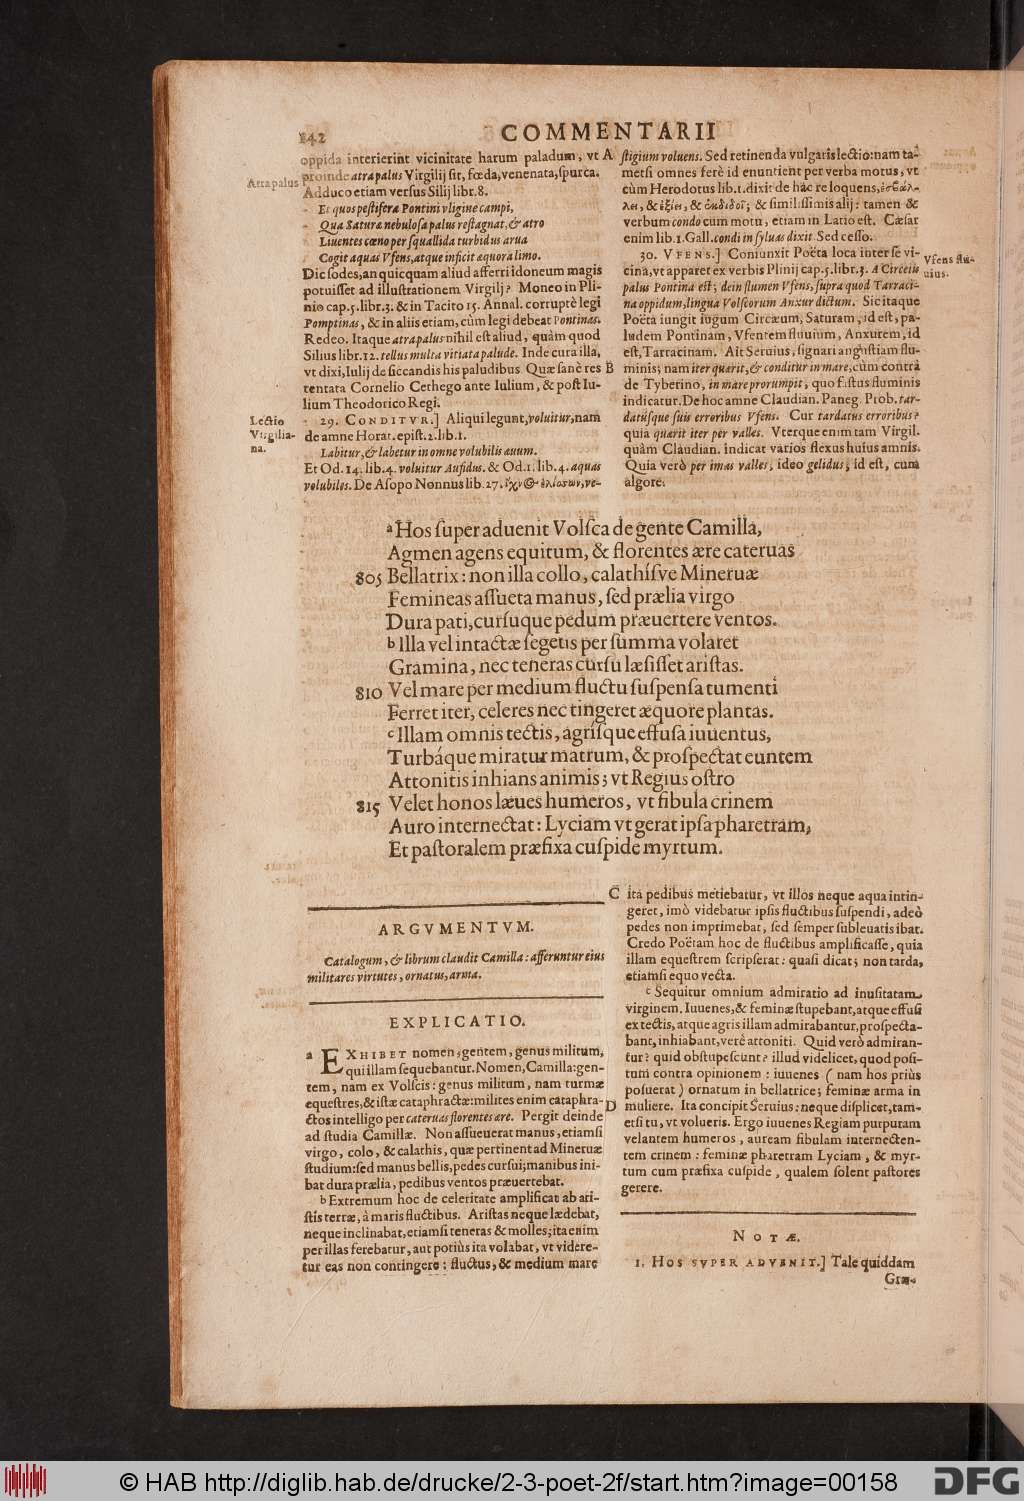 142
COMMENTARII
oppida interierint vicinitate harum paludum, vt
Atra palus
proinde atra palus Virgilij sit, fœda, venenata, spurca.
Adduco etiam versus Silij libr. 8.
Et quos pestifera Pontini vligine campi,
Qua Saturæ nebulosa palus restagnat, & atro
Liuentes cœno per squallida turbidus arua
Cogit aquas Vfens, atque inficit æquora limo.
Dic sodes, an quicquam aliud afferri idoneum magis
potuisset ad illustrationem Virgilj? Moneo in Pli-
nio cap. 5. libr. 3. & in Tacito 15. Annal. corruptè legi
Pomptinas, & in aliis etiam, cùm legi debeat Pontinas.
Redeo. Itaque atra palus nihil est aliud, quàm quod
Silius libr. 12. tellus multa vitiata palude. Inde cura illa,
vt dixi, Iulij de siccandis his paludibus Quæ sanè res
tentata Cornelio Cethego ante Iulium, & post Iu-
lium Theodorico Regi.
Lectio
Virgilia-
na.
29. CONDITVR.] Aliqui legunt, voluitur, nam
de amne Horat. epist. 2. lib. 1.
Labitur, & labetur in omne volubilis æuum.
Et Od. 14. lib. 4. voluitur Aufidus. & Od. 1. lib. 4. aquas
volubiles. De Asopo Nonnus lib. 27. ve-
A
stigium voluens. Sed retinenda vulgaris lectio: nam ta-
metsi omnes ferè id enuntient per verba motus, vt
cùm Herodotus lib. 1. dixit de hac re loquens, ἐσβάλ-
λει, & ἐξίει, & ἐκδιδοῖ; & simillissimis alij: tamen &
verbum condo cum motu, etiam in Latio est. Cæsar
enim lib. 1. Gall. condi in syluas dixit. Sed cesso.
30. VFENS.] Coniunxit Poëta loca inter se vi-
Vfens flu-
uius.
cina, vt apparet ex verbis Plinij cap. 5. libr. 3. A Circeiis
palus Pontina est; dein flumen Vfens, supra quod Tarraci-
na oppidum, lingua Volscorum Anxur dictum. Sic itaque
Poëta iungit iugum Circæum, Saturam, id est, pa-
ludem Pontinam, Vfentem fluuium, Anxurem, id
est, Tarracinam. Ait Seruius, signari angustiam flu-
B
minis; nam iter quærit, & conditur in mare, cùm contrà
de Tyberino, in mare prorumpit, quo fastus fluminis
indicatur. De hoc amne Claudian. Paneg. Prob. tar-
datúsque suis erroribus Vfens. Cur tardatus erroribus?
quia quærit iter per valles. Vterque enim tam Virgil.
quàm Claudian. indicat varios flexus huius amnis.
Quia verò per imas valles, ideo gelidus, id est, cum
algore.
a Hos super aduenit Volsca de gente Camilla,
Agmen agens equitum, & florentes ære cateruas
805 Bellatrix: non illa collo, calathísve Mineruæ
Femineas assueta manus, sed prælia virgo
Dura pati, cursuque pedum præuertere ventos.
b Illa vel intactæ segetis per summa volaret
Gramina, nec teneras cursu læsisset aristas.
810 Vel mare per medium fluctu suspensa tumenti
Ferret iter, celeres nec tingeret æquore plantas.
c Illam omnis tectis, agrísque effusa iuuentus,
Turbáque miratur matrum, & prospectat euntem
Attonitis inhians animis; vt Regius ostro
815 Velet honos læues humeros, vt fibula crinem
Auro internectat: Lyciam vt gerat ipsa pharetram,
Et pastoralem præfixa cuspide myrtum.
ARGVMENTVM.
Catalogum, & librum claudit Camilla: afferuntur eius
militares virtutes, ornatus, arma.
EXPLICATIO.
a EXHIBET nomen, gentem, genus militum,
qui illam sequebantur. Nomen, Camilla: gen-
tem, nam ex Volscis: genus militum, nam turmæ
equestres, & istæ cataphractæ: milites enim cataphra-
ctos intelligo per cateruas florentes ære. Pergit deinde
ad studia Camillæ. Non assueuerat manus, etiamsi
virgo, colo, & calathis, quæ pertinent ad Mineruæ
studium: sed manus bellis, pedes cursui; manibus ini-
bat dura prælia, pedibus ventos præuertebat.
b Extremum hoc de celeritate amplificat ab ari-
stis terræ, à maris fluctibus. Aristas neque lædebat,
neque inclinabat, etiamsi teneras & molles; ita enim
per illas ferebatur, aut potiùs ita volabat, vt videre-
tur eas non contingere: fluctus, & medium mare
C
ita pedibus metiebatur, vt illos neque aqua intin-
geret, imò videbatur ipsis fluctibus suspendi, adeò
pedes non imprimebat, sed semper subleuatis ibat.
Credo Poëtam hoc de fluctibus amplificasse, quia
illam equestrem scripserat: quasi dicat; non tarda,
etiamsi equo vecta.
c Sequitur omnium admiratio ad inusitatam
virginem. Iuuenes, & feminæ stupebant, atque effusi
ex tectis, atque agris illam admirabantur, prospecta-
bant, inhiabant, verè attoniti. Quid verò admiran-
tur? quid obstupescunt? illud videlicet, quod posi-
tum contra opinionem: iuuenes (nam hos priùs
posuerat) ornatum in bellatrice; feminæ arma in
D
muliere. Ita concipit Seruius: neque displicet, tam-
etsi tu, vt volueris. Ergo iuuenes Regiam purpuram
velantem humeros, auream fibulam internecten-
tem crinem: feminæ pharetram Lyciam, & myr-
tum cum præfixa cuspide, qualem solent pastores
gerere.
NOTÆ.
1. HOS SVPER ADVENIT.] Tale quiddam
Græ-
© HAB http://diglib.hab.de/drucke/2-3-poet-2f/start.htm?image=00158
DFG